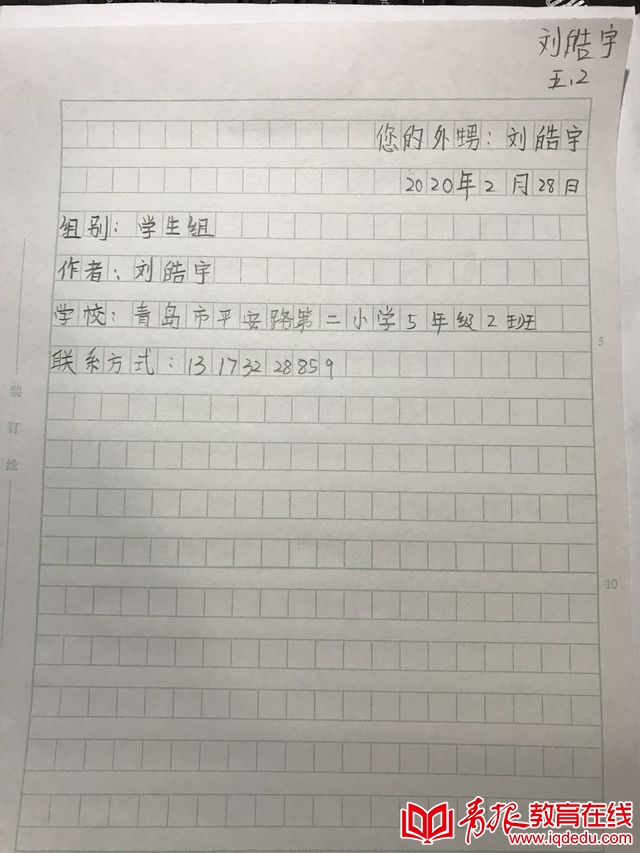 刘皓宇
五.2
您的外甥：刘皓宇
2020年2月28日
组别：学生组
作者：刘皓宇
学校：青岛市平安路第二小学5年级2班
联系方式：13173228859
5
10
装订线
青报教育在线
www.iqdedu.com